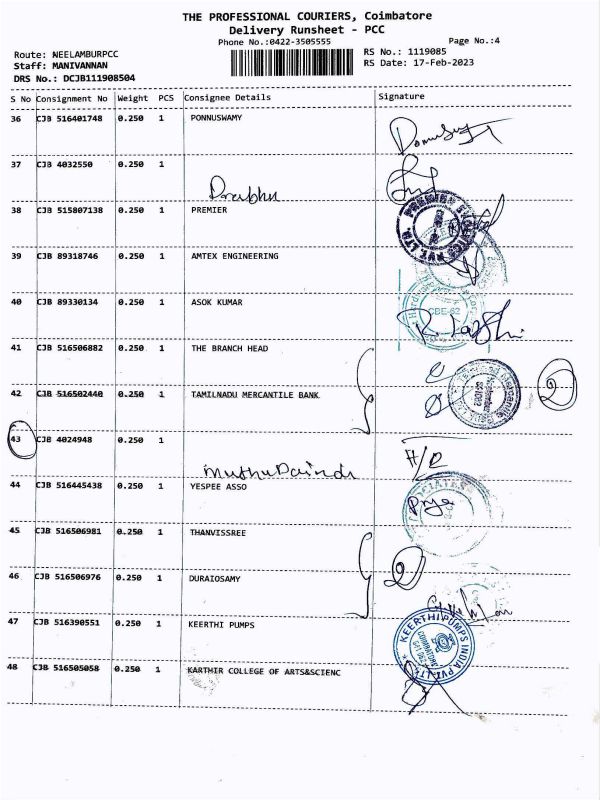 THE PROFESSIONAL COURIERS, Coimbatore
Delivery Runsheet - PCC
Phone No.:0422-3505555
Page No.:4
Route: NEELAMBURPCC
RS No.: 1119085
Staff: MANIVANNAN
RS Date: 17-Feb-2023
DRS No.: DCJB111908504
S No Consignment No Weight PCS Consignee Details Signature
36 CJB 516401748 0.250 1 PONNUSWAMY
37 CJB 4032550 0.250 1
Prabhu
38 CJB 515807138 0.250 1 PREMIER
39 CJB 89318746 0.250 1 AMTEX ENGINEERING
40 CJB 89330134 0.250 1 ASOK KUMAR
CBE-62
41 CJB 516506882 0.250 1 THE BRANCH HEAD
42 CJB 516502440 0.250 1 TAMILNADU MERCANTILE BANK
2
43 CJB 4024948 0.250 1
44 CJB 516445438 0.250 1 YESPEE ASSO
Priya
45 CJB 516506981 0.250 1 THANVISSREE
2
46 CJB 516506976 0.250 1 DURAIOSAMY
47 CJB 516390551 0.250 1 KEERTHI PUMPS
KEERTHI PUMPS INDIA PVT. LTD.
48 CJB 516505058 0.250 1 KARTHIR COLLEGE OF ARTS&SCIENC